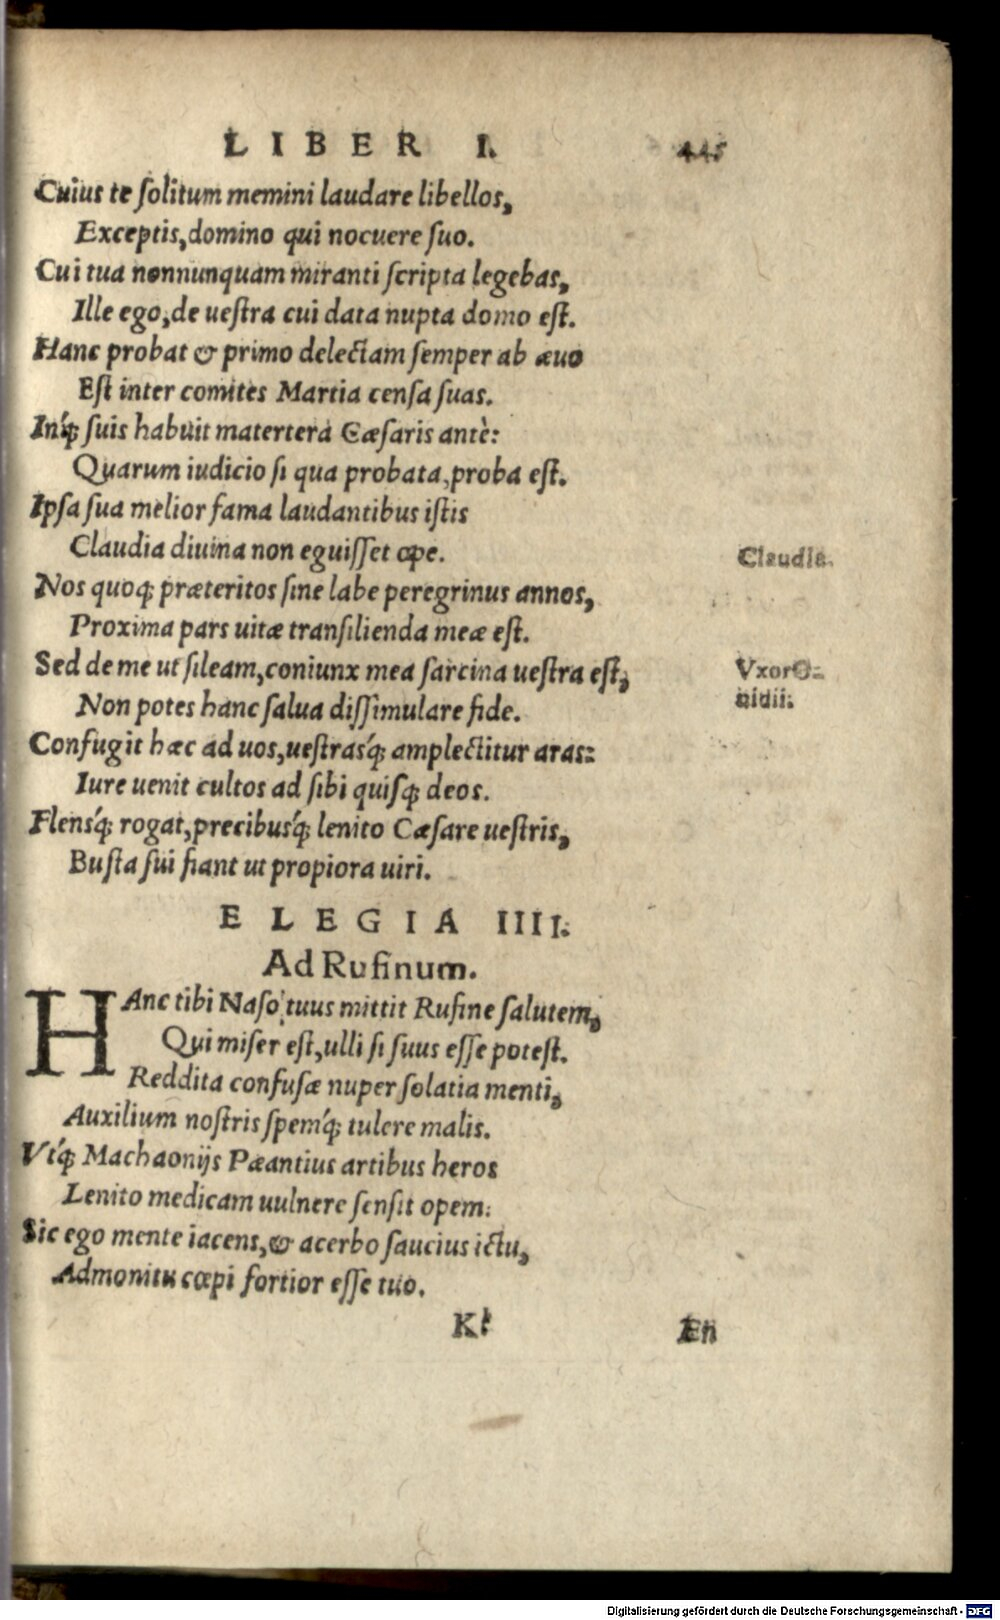 LIBER I. 445
Cuius te ſolitum memini laudare libellos,
Exceptis, domino qui nocuere ſuo.
Cui tua nonnunquam miranti ſcripta legebas,
Ille ego, de ueſtra cui data nupta domo eſt.
Hanc probat & primo delectam ſemper ab æuo
Eſt inter comites Martia cenſa ſuas.
Inq́; ſuis habuit matertera Cæſaris antè:
Quarum iudicio ſi qua probata, proba eſt.
Ipſa ſua melior fama laudantibus iſtis
Claudia diuina non eguiſſet ope.
Claudia.
Nos quoq; præteritos ſine labe peregrinus annos,
Proxima pars uitæ tranſilienda meæ eſt.
Sed de me ut ſileam, coniunx mea ſarcina ueſtra eſt,
Vxor O-
uidii.
Non potes hanc ſalua diſſimulare fide.
Confugit hæc ad uos, ueſtrasq́; amplectitur aras:
Iure uenit cultos ad ſibi quiſq; deos.
Flensq́; rogat, precibusq́; lenito Cæſare ueſtris,
Buſta ſui fiant ut propiora uiri.
ELEGIA IIII.
Ad Rufinum.
HAnc tibi Naſo tuus mittit Rufine ſalutem,
Qui miſer eſt, ulli ſi ſuus eſſe poteſt.
Reddita confuſæ nuper ſolatia menti,
Auxilium noſtris ſpemq́; tulere malis.
Vtq́; Machaonijs Pæantius artibus heros
Lenito medicam uulnere ſenſit opem:
Sic ego mente iacens, & acerbo ſaucius ictu,
Admonitu cœpi fortior eſſe tuo.
En
Digitalisierung gefördert durch die Deutsche Forschungsgemeinschaft - DFG